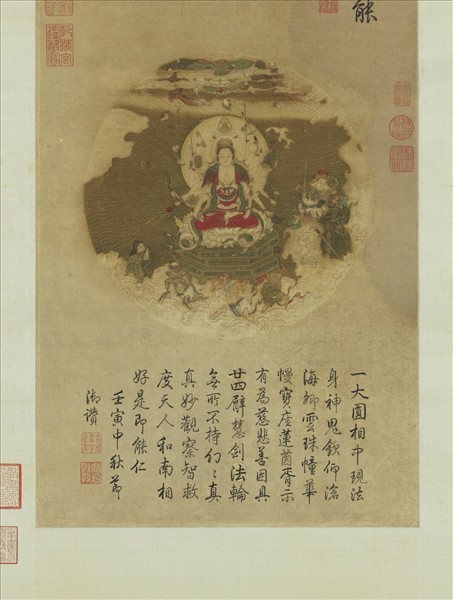 能
一大圓相中現法
身神鬼欽仰滄
海卿雲珠幢華
幔寶座蓮茵胥示
有為慈悲善因具
廿四臂慧劍法輪
無所不持幻〻真
真妙觀察智救
度天人和南相
好是即能仁
壬寅中秋節
御讚